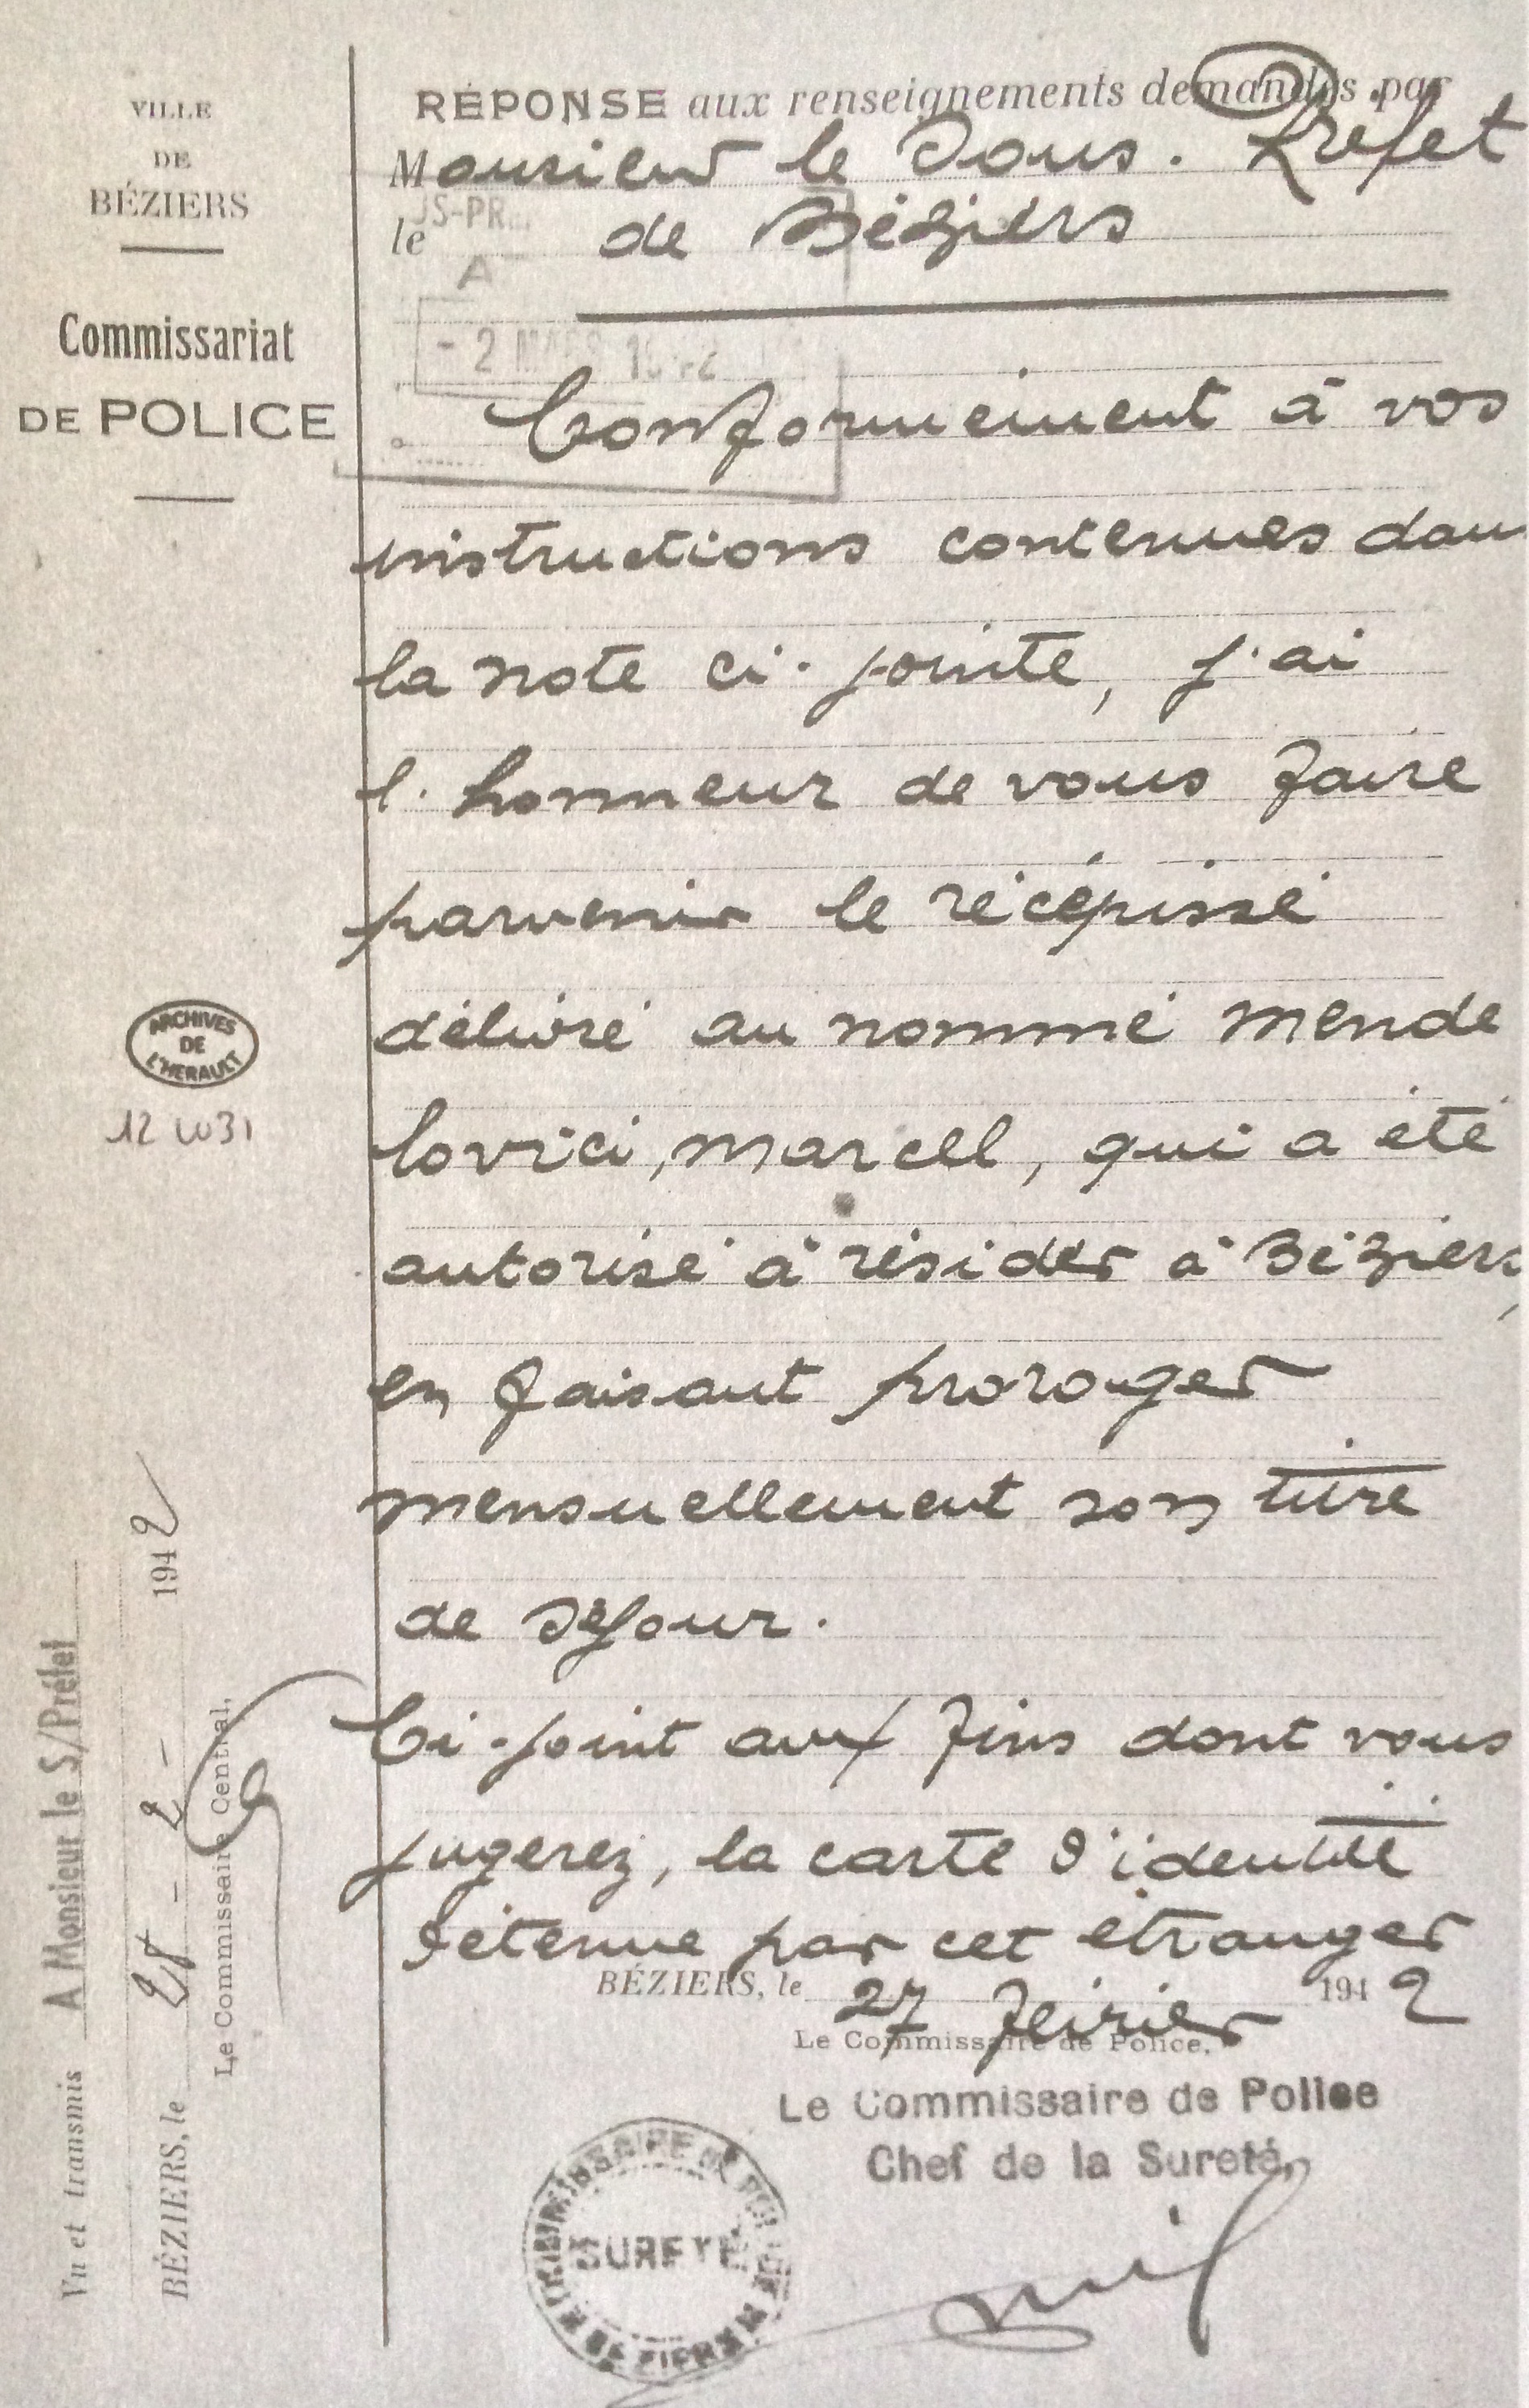 VILLE
DE
BÉZIERS
Commissariat
DE POLICE
RÉPONSE aux renseignements demandés par
Monsieur le Sous-Préfet
le de Béziers
S-PR
A
- 2 MARS 1942
Conformément à vos
instructions contenues dans
la note ci-jointe, j'ai
l'honneur de vous faire
parvenir le récépissé
délivré au nommé Mende
lovici, Marcel, qui a été
autorisé à résider à Béziers,
en faisant proroger
mensuellement son titre
de séjour.
Ci-joint aux fins dont vous
jugerez, la carte d'identité
détenue par cet étranger
BÉZIERS, le 27 février 1942
Le Commissaire de Police,
Le Commissaire de Police
Chef de la Sureté,
SURETÉ
ARCHIVES
DE
L'HERAULT
12 W31
Vu et transmis A Monsieur le S/Préfet
BÉZIERS, le 28 - 2 - 1942
Le Commissaire Central,